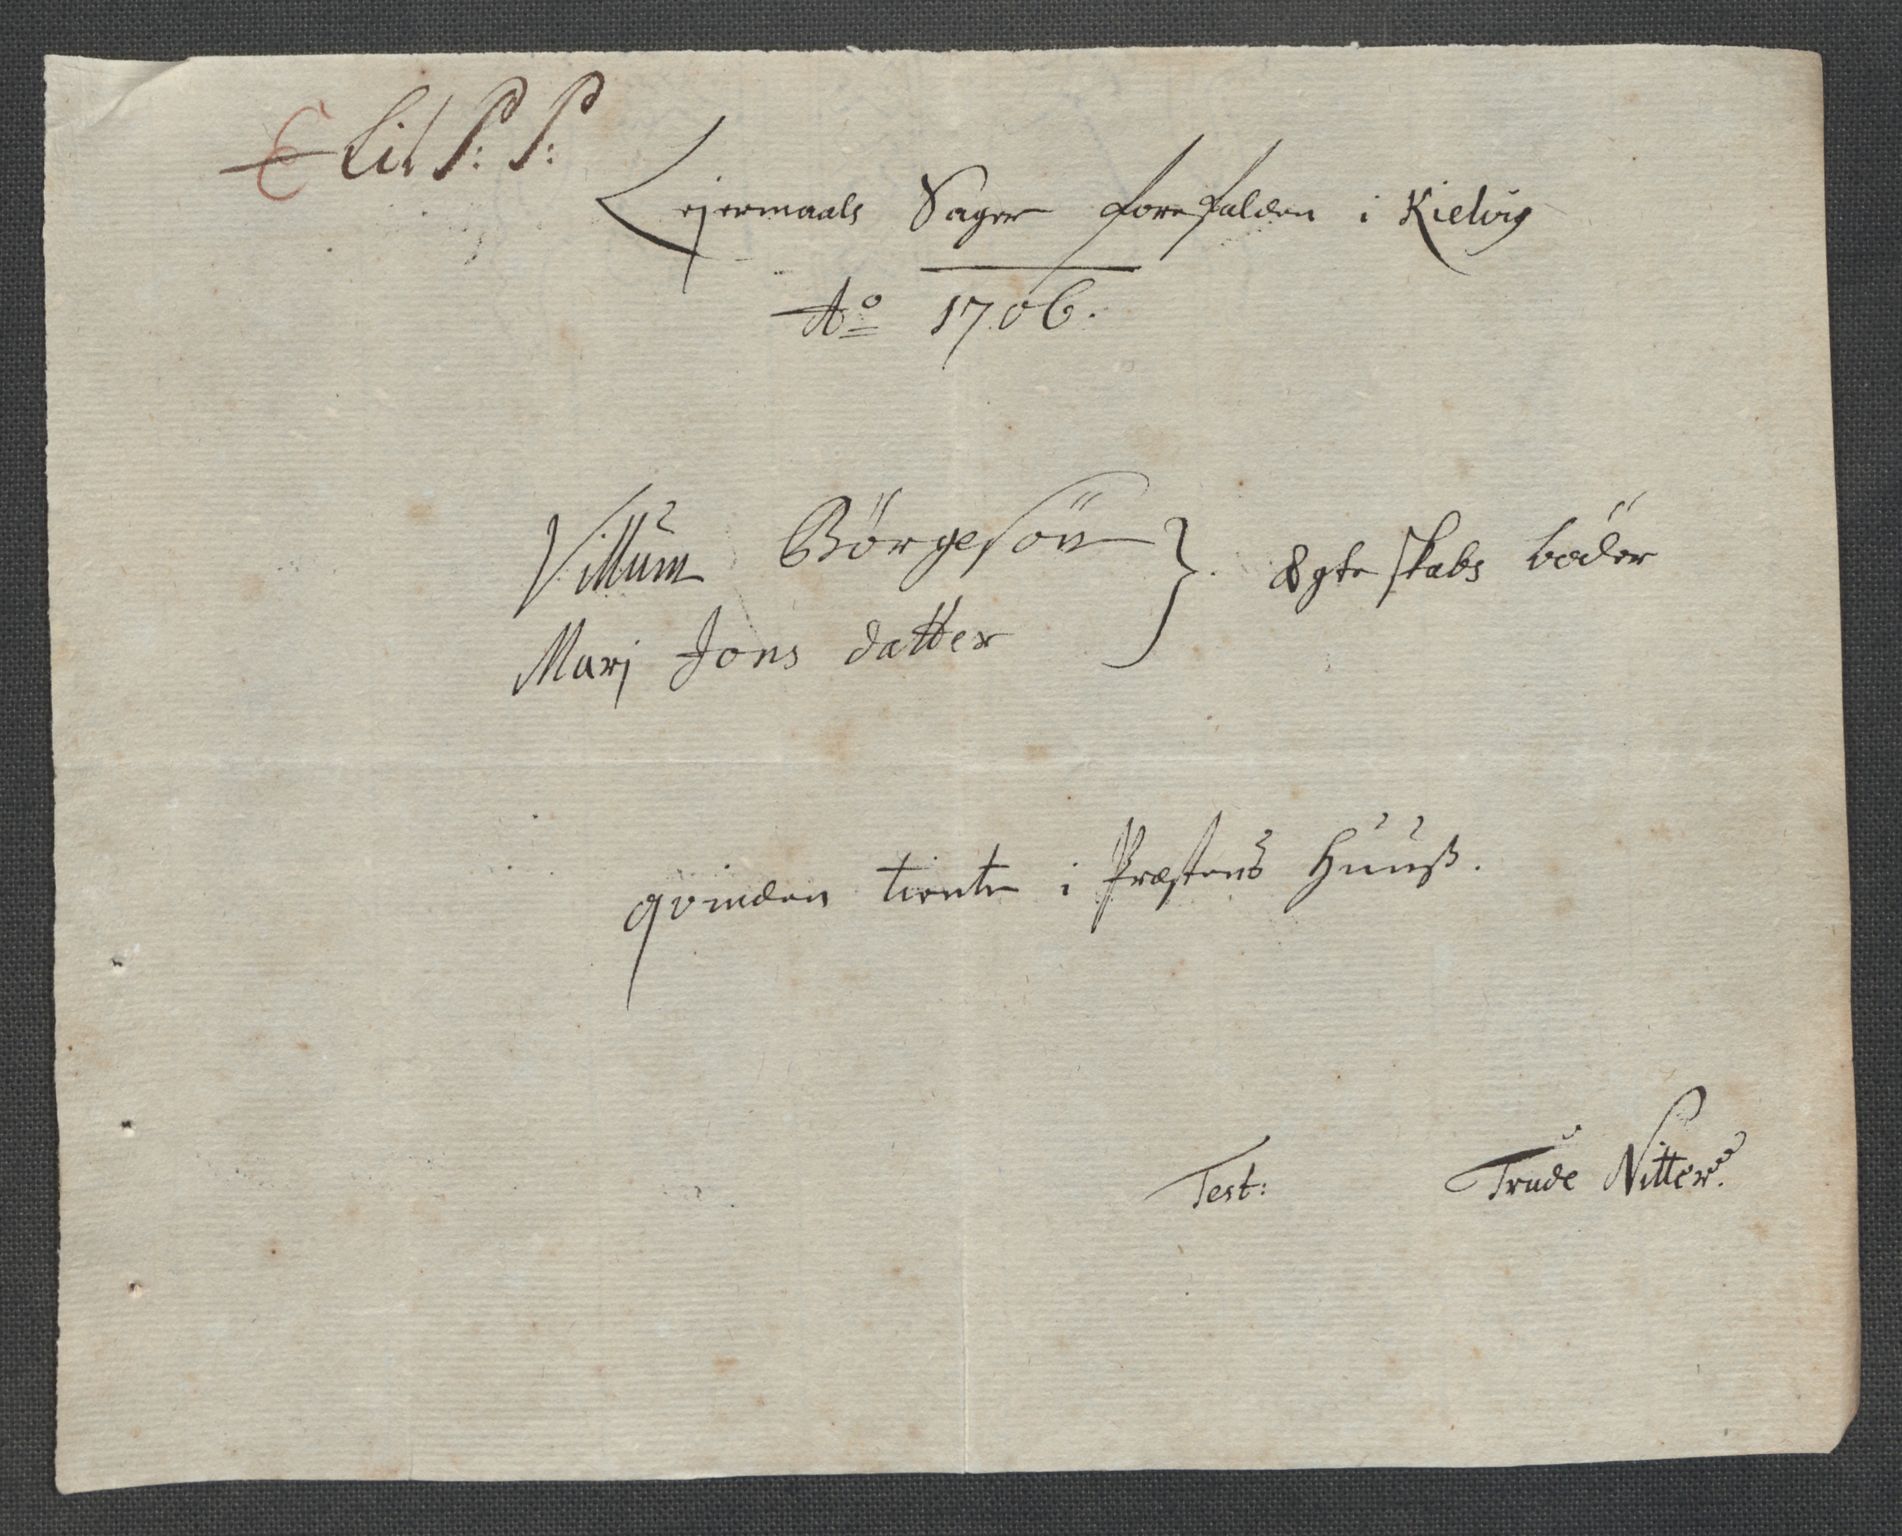 Lit P: P:
Lejermaals Sager forefalden i Kielvig
Ao 1706.
Villum Börgesön } . Ægte skabs böder
Marj Jons datter
qvinden tiente i Præstens Huuß.
Test: Trude Nitter